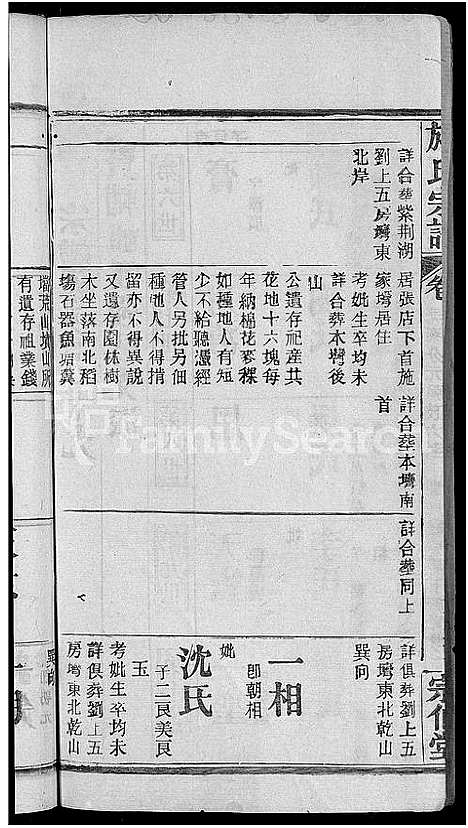 施氏宗譜
卷
宗仁堂
詳合葬紫荆湖
劉上五房塆東
北岸
居張店下首施
家塆居住
考妣生卒均未
詳合葬本塆後
山
公遺存祀産共
花地十六塊每
年納棉花麥稞
如種地人有短
少不給聽憑經
管人另批另佃
種地人不得捎
留亦不得異說
又遺存園林樹
木坐落南北稻
塲石器魚塘糞
詳合葬本塆南
首
詳合葬同上
詳俱葬劉上五
房塆東北乾山
巽向
一相
卽朝相
妣
沈氏
子二艮美艮
玉
考妣生卒均未
詳俱葬劉上五
房塆東北乾山
有遺存祖業錢
FamilySearch